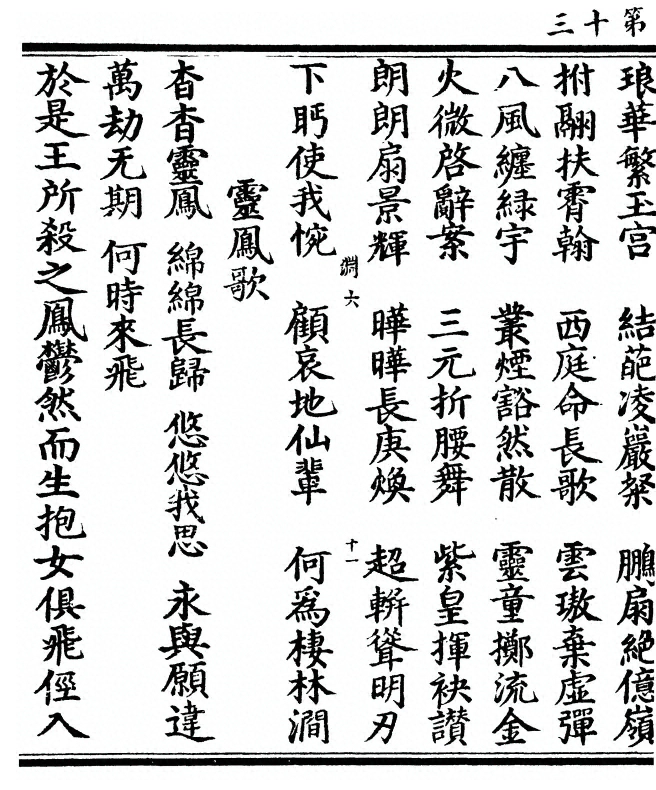 第十三
琅華繁玉宮 結葩凌巖粲 鵬扇絕億嶺
拊翮扶霄翰 西庭命長歌 雲璈棄虛彈
八風纏綠宇 叢煙豁然散 靈童擲流金
火微啓辭案 三元折腰舞 紫皇揮袂讃
朗朗扇景輝 曄曄長庚煥 超軿聳明刃
淵六
十一
下眄使我惋 顧哀地仙輩 何爲棲林澗
靈鳳歌
杳杳靈鳳 綿綿長歸 悠悠我思 永與願違
萬劫无期 何時來飛
於是王所殺之鳳鬱然而生抱女俱飛俓入